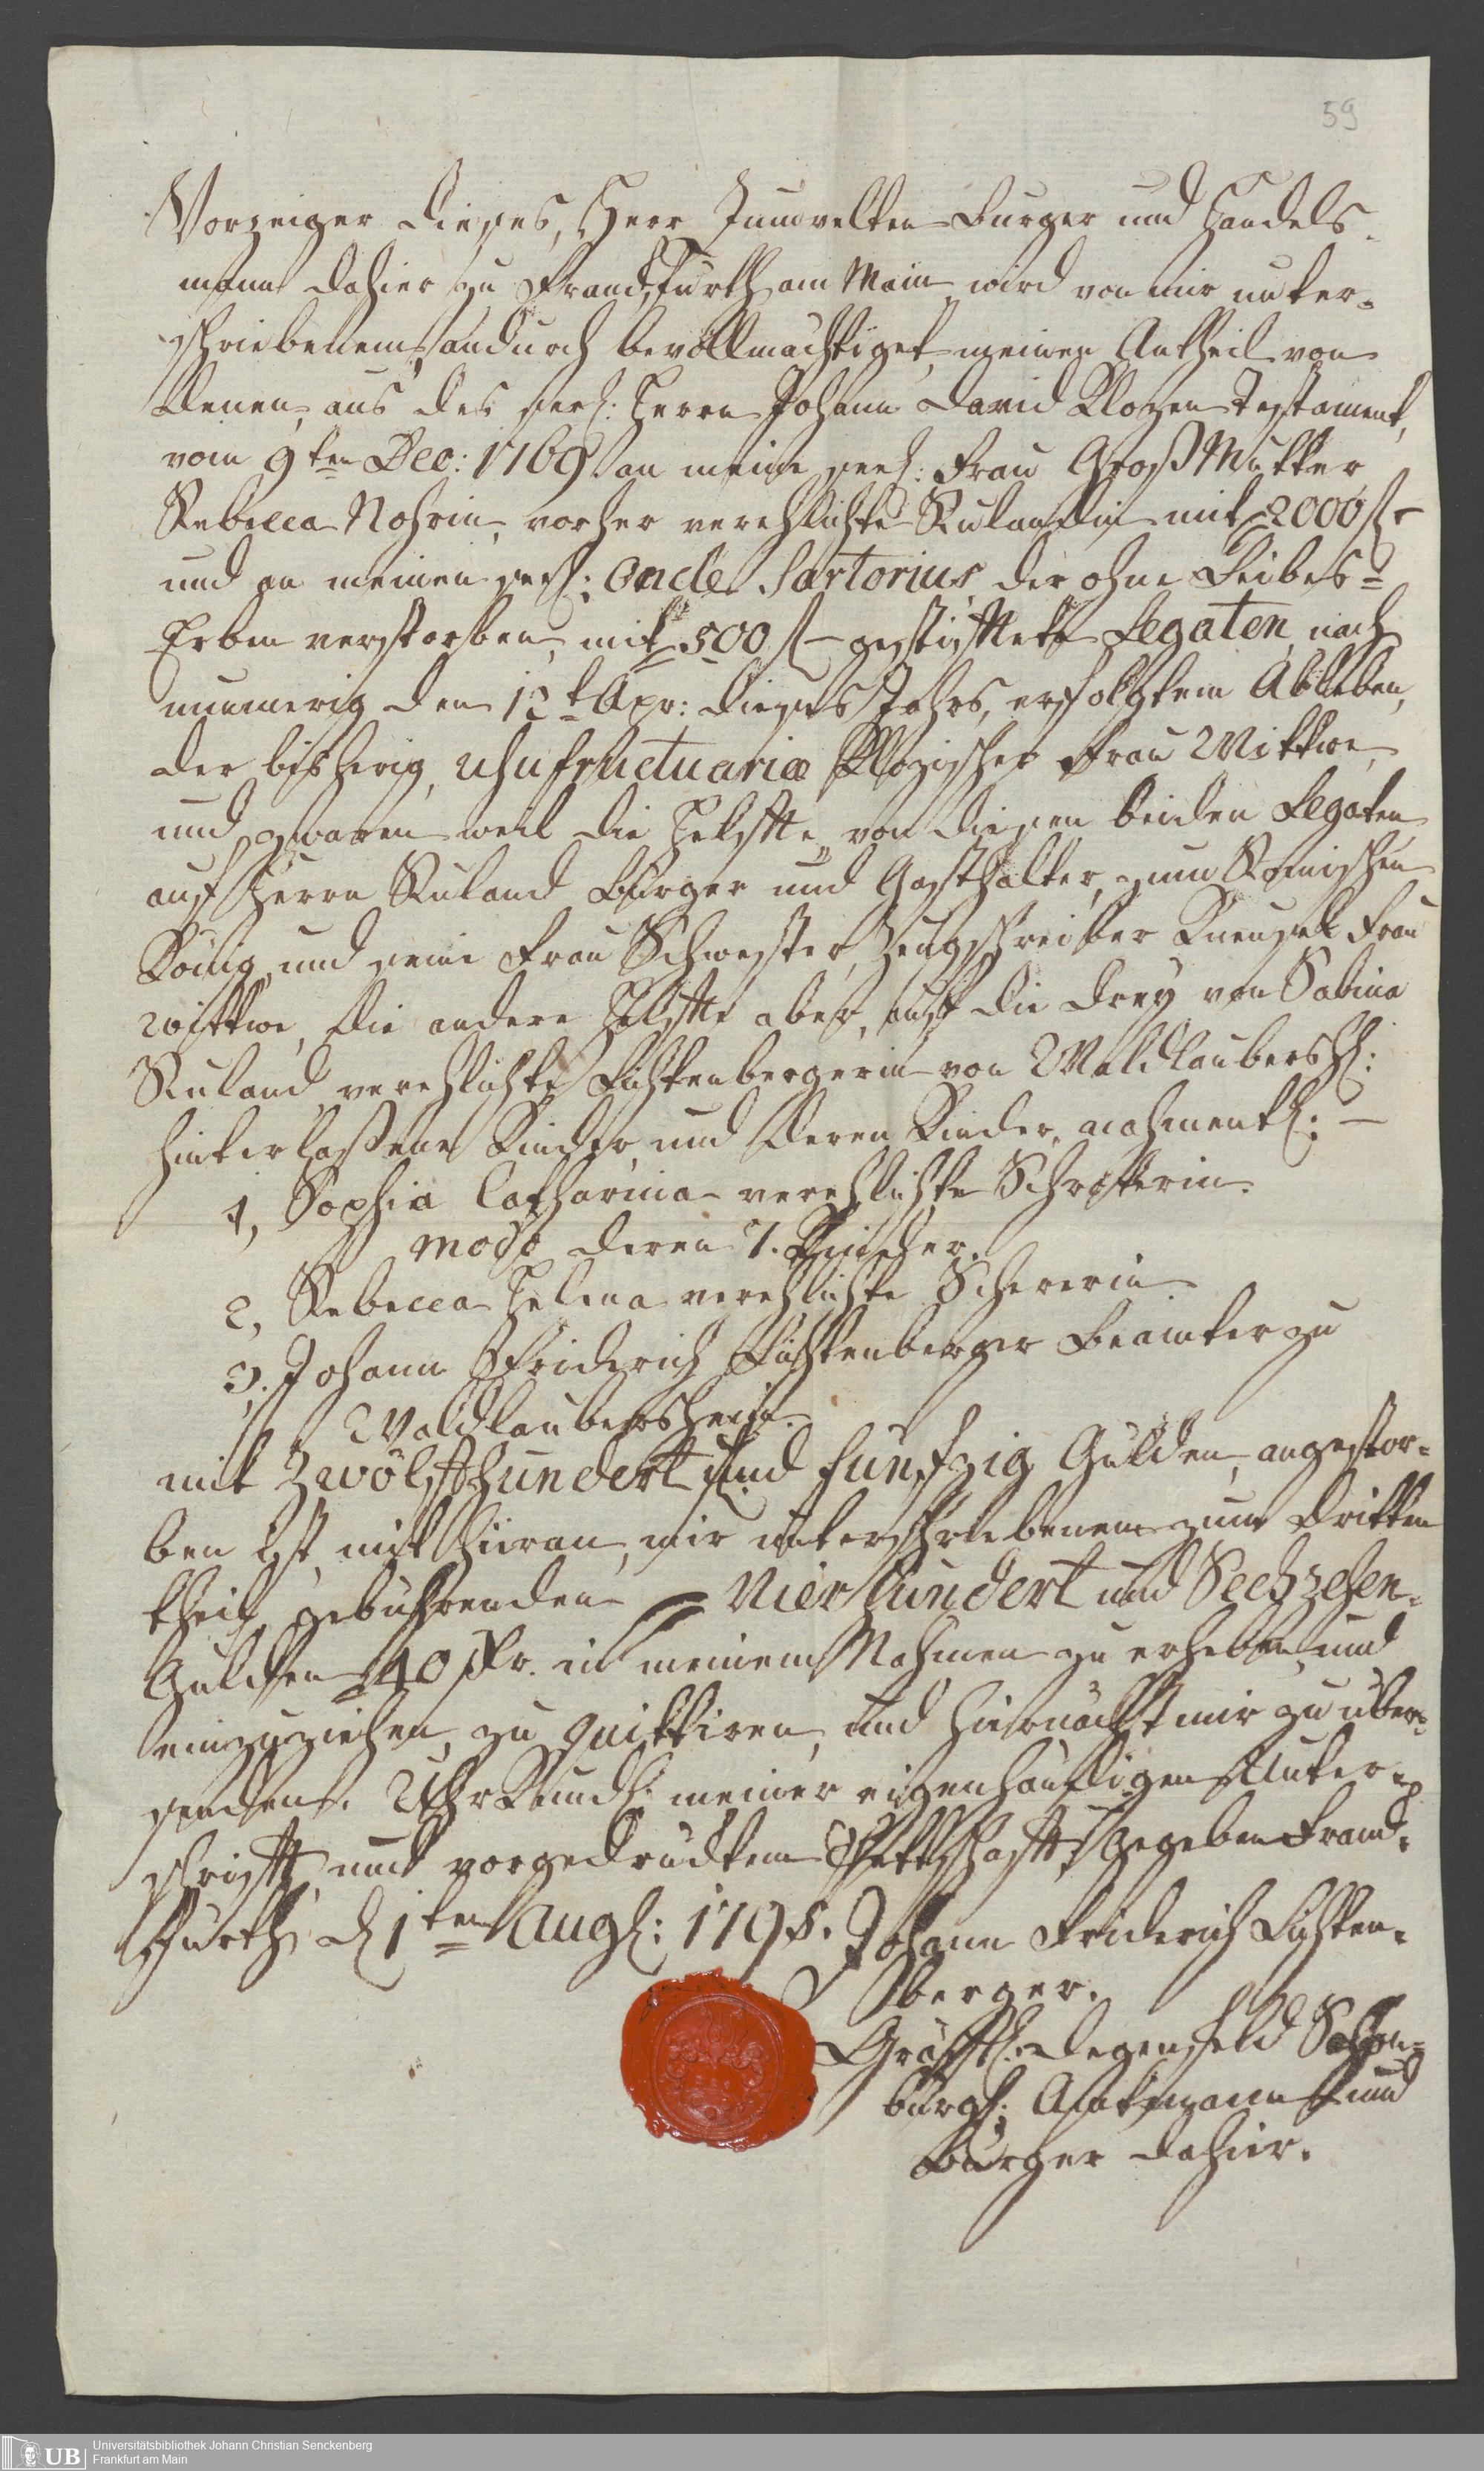 59
Vorzeiger dieses, Herr Zumvelten Burger und Handels-
mann dahier zu Franckfurth am Main wird von mir unter-
schriebenem, andurch bevollmächtiget, meinen Antheil von
denen, aus des seel: Herrn Johann David Klozen Testament,
vom 9ten Dec: 1769 an meine seel: Frau Groß Mutter
Rebecca Nohrin, vorher verehlichte Rulandin mit 2000 fl –
und an meinen seel: Oncle Sartorius der ohne Leibes-
Erben verstorben, mit 500 fl – gestifftete Legaten, nach
nunmerig den 12t Apr: dieses Jahrs, erfolgtem Ableben,
der bisherig, usufructuariæ Klozischer Frau Wittwe,
und zwaren weil die Helffte von diesen beiden Legaten
auf Herrn Ruland Burger und Gasthalter, zum Römischen
König, und seine Frau Schwester, Zeugschreiber Frau
Wittwe, die andere Helffte aber, auf die drey von Sabina
Ruland verehlichte Lichtenbergerin von Waldlaubersh:
hinterlaßene Kinder, und deren Kinder, nahmentl: –
1, Sophia Catharina verehlichte Schröterin.
modo deren 7. Kinder.
2, Rebecca Helena verehlichte Schererin
3. Johann Friderich Lichtenberger Beamter zu
Waldlaubersheim.
mit Zwölffhundert und funfzig Gulden, angestor-
ben ist, mit hieran, mir unterschriebenem zum dritten
theil gebührenden – Vierhundert und Sechzehen
Gulden 40 Kr. in meinem Nahmen zu erheben und
einzuziehen, zu quittiren, und hiernächst mir zu über-
senden. Uhrkundl: meiner eigenhändigen Unter-
schrifft und vorgedrucktem Pettschafft, Gegeben Franck-
furth d 1ten Augl: 1795. Johann Friderich Lichten-
berger.
Gräffl: Degenfeld Schon-
burgl: Amtmann und
Burger dahier.
UB Universitätsbibliothek Johann Christian Senckenberg
Frankfurt am Main